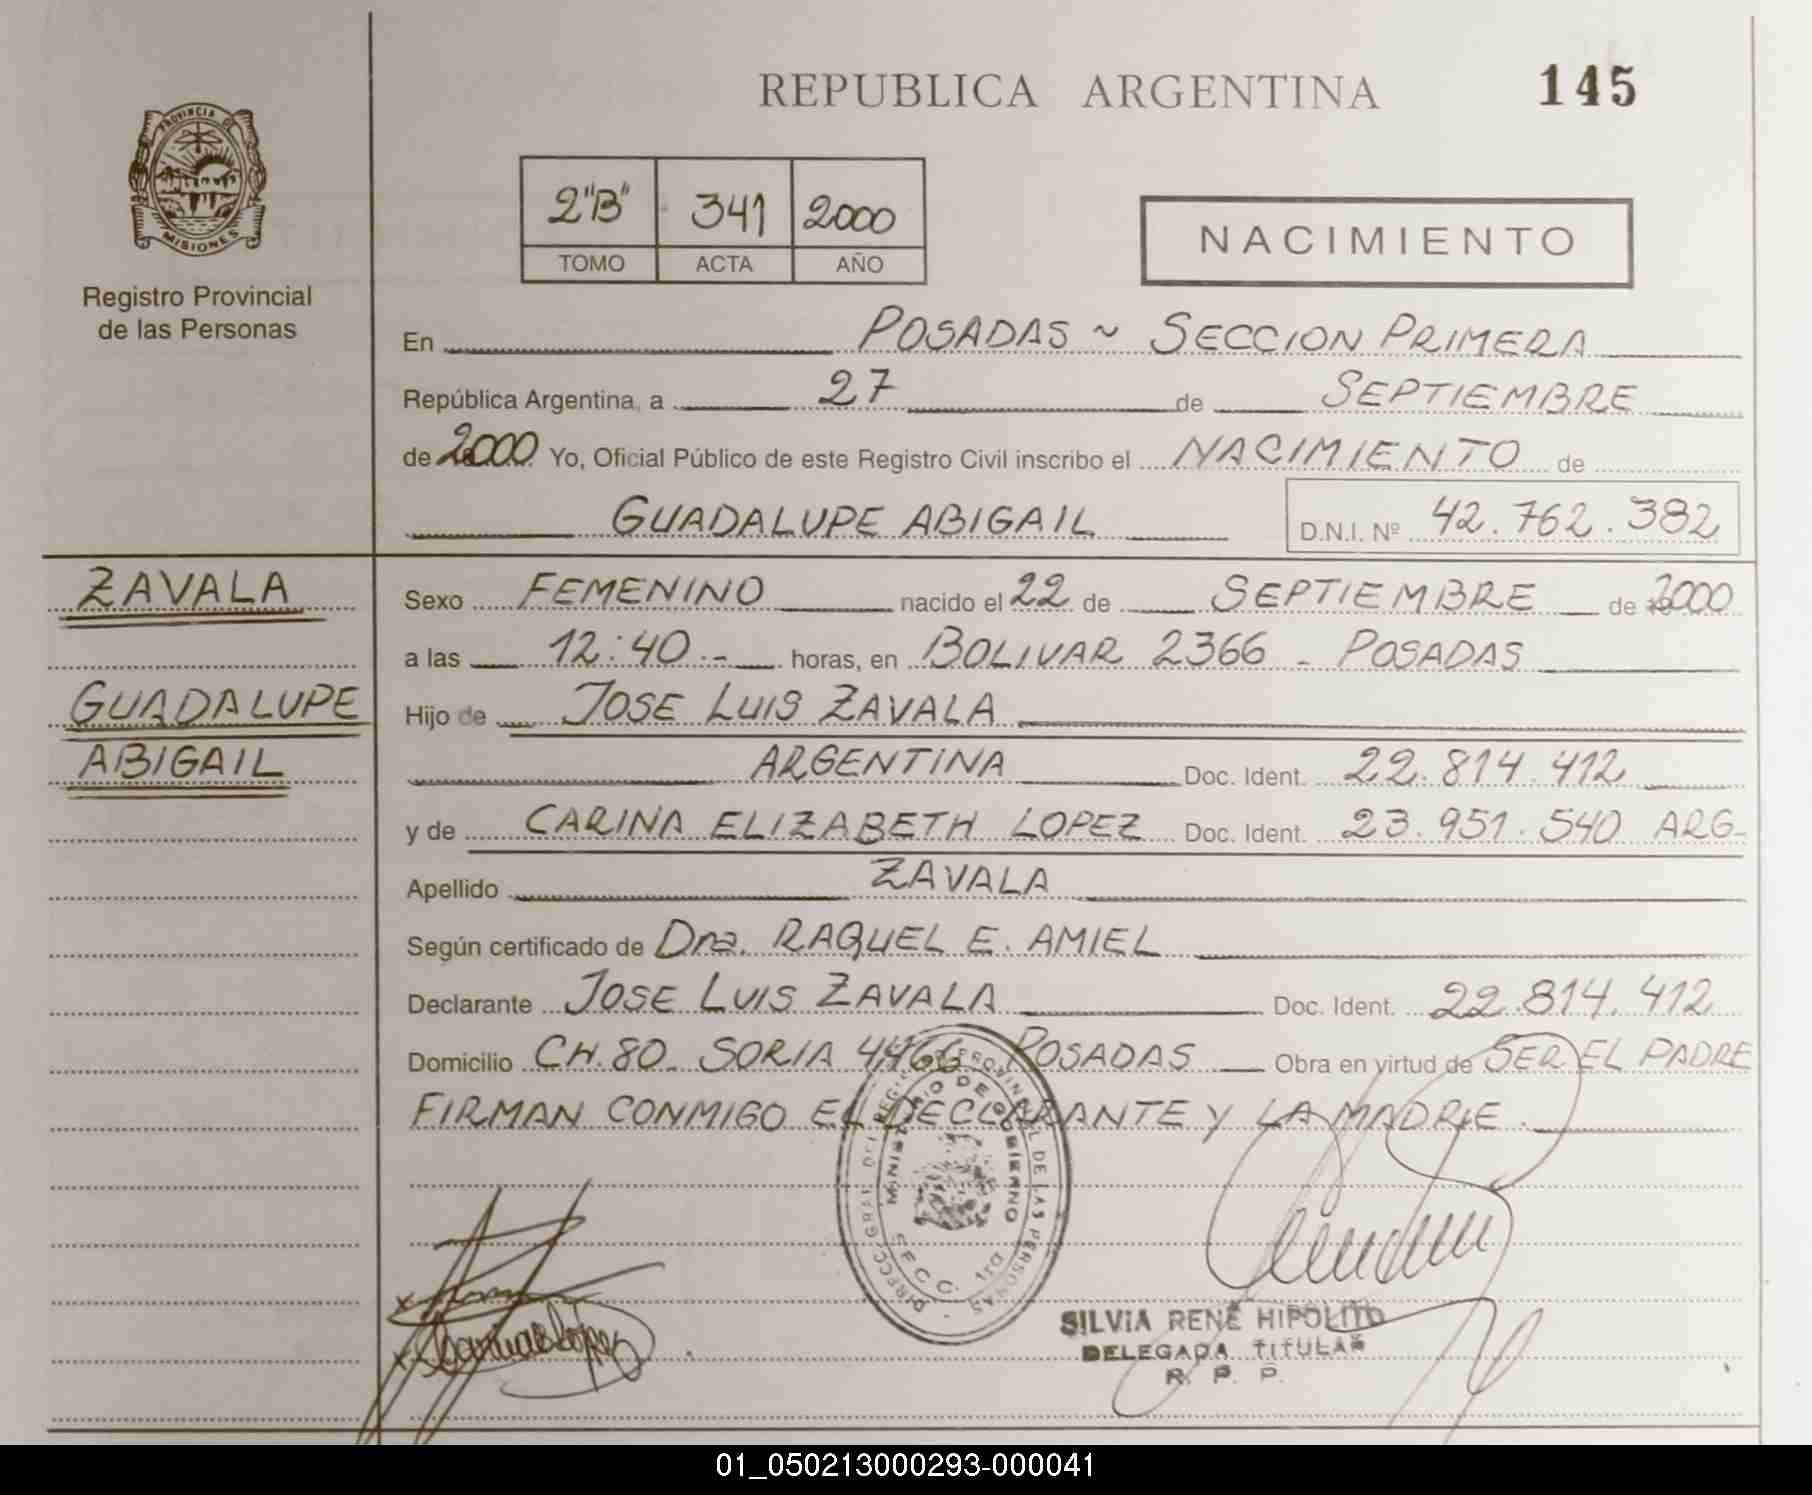 REPUBLICA ARGENTINA
145
PROVINCIA DE
MISIONES
Registro Provincial
de las Personas
2"B" 341 2000
TOMO ACTA AÑO
NACIMIENTO
En POSADAS ~ SECCION PRIMERA
República Argentina, a 27 de SEPTIEMBRE
de 2000 Yo, Oficial Público de este Registro Civil inscribo el NACIMIENTO de
GUADALUPE ABIGAIL D.N.I. Nº 42.762.382
ZAVALA
GUADALUPE
ABIGAIL
Sexo FEMENINO nacido el 22 de SEPTIEMBRE de 2000
a las 12:40.- horas, en BOLIVAR 2366 - POSADAS
Hijo de JOSE LUIS ZAVALA
ARGENTINA Doc. Ident. 22.814.412
y de CARINA ELIZABETH LOPEZ Doc. Ident. 23.951.540 ARG-
Apellido ZAVALA
Según certificado de Dra. RAQUEL E. AMIEL
Declarante JOSE LUIS ZAVALA Doc. Ident. 22.814.412
Domicilio CH. 80_ SORIA 4466 POSADAS Obra en virtud de SER EL PADRE
FIRMAN CONMIGO EL DECLARANTE Y LA MADRE.
DIRECC GRAL DEL REGISTRO PROVINCIAL DE LAS PERSONAS
MINISTERIO DE GOBIERNO
SECC. 1ra
SILVIA RENÉ HIPOLITO
DELEGADA TITULAR
R. P. P.
01_050213000293-000041